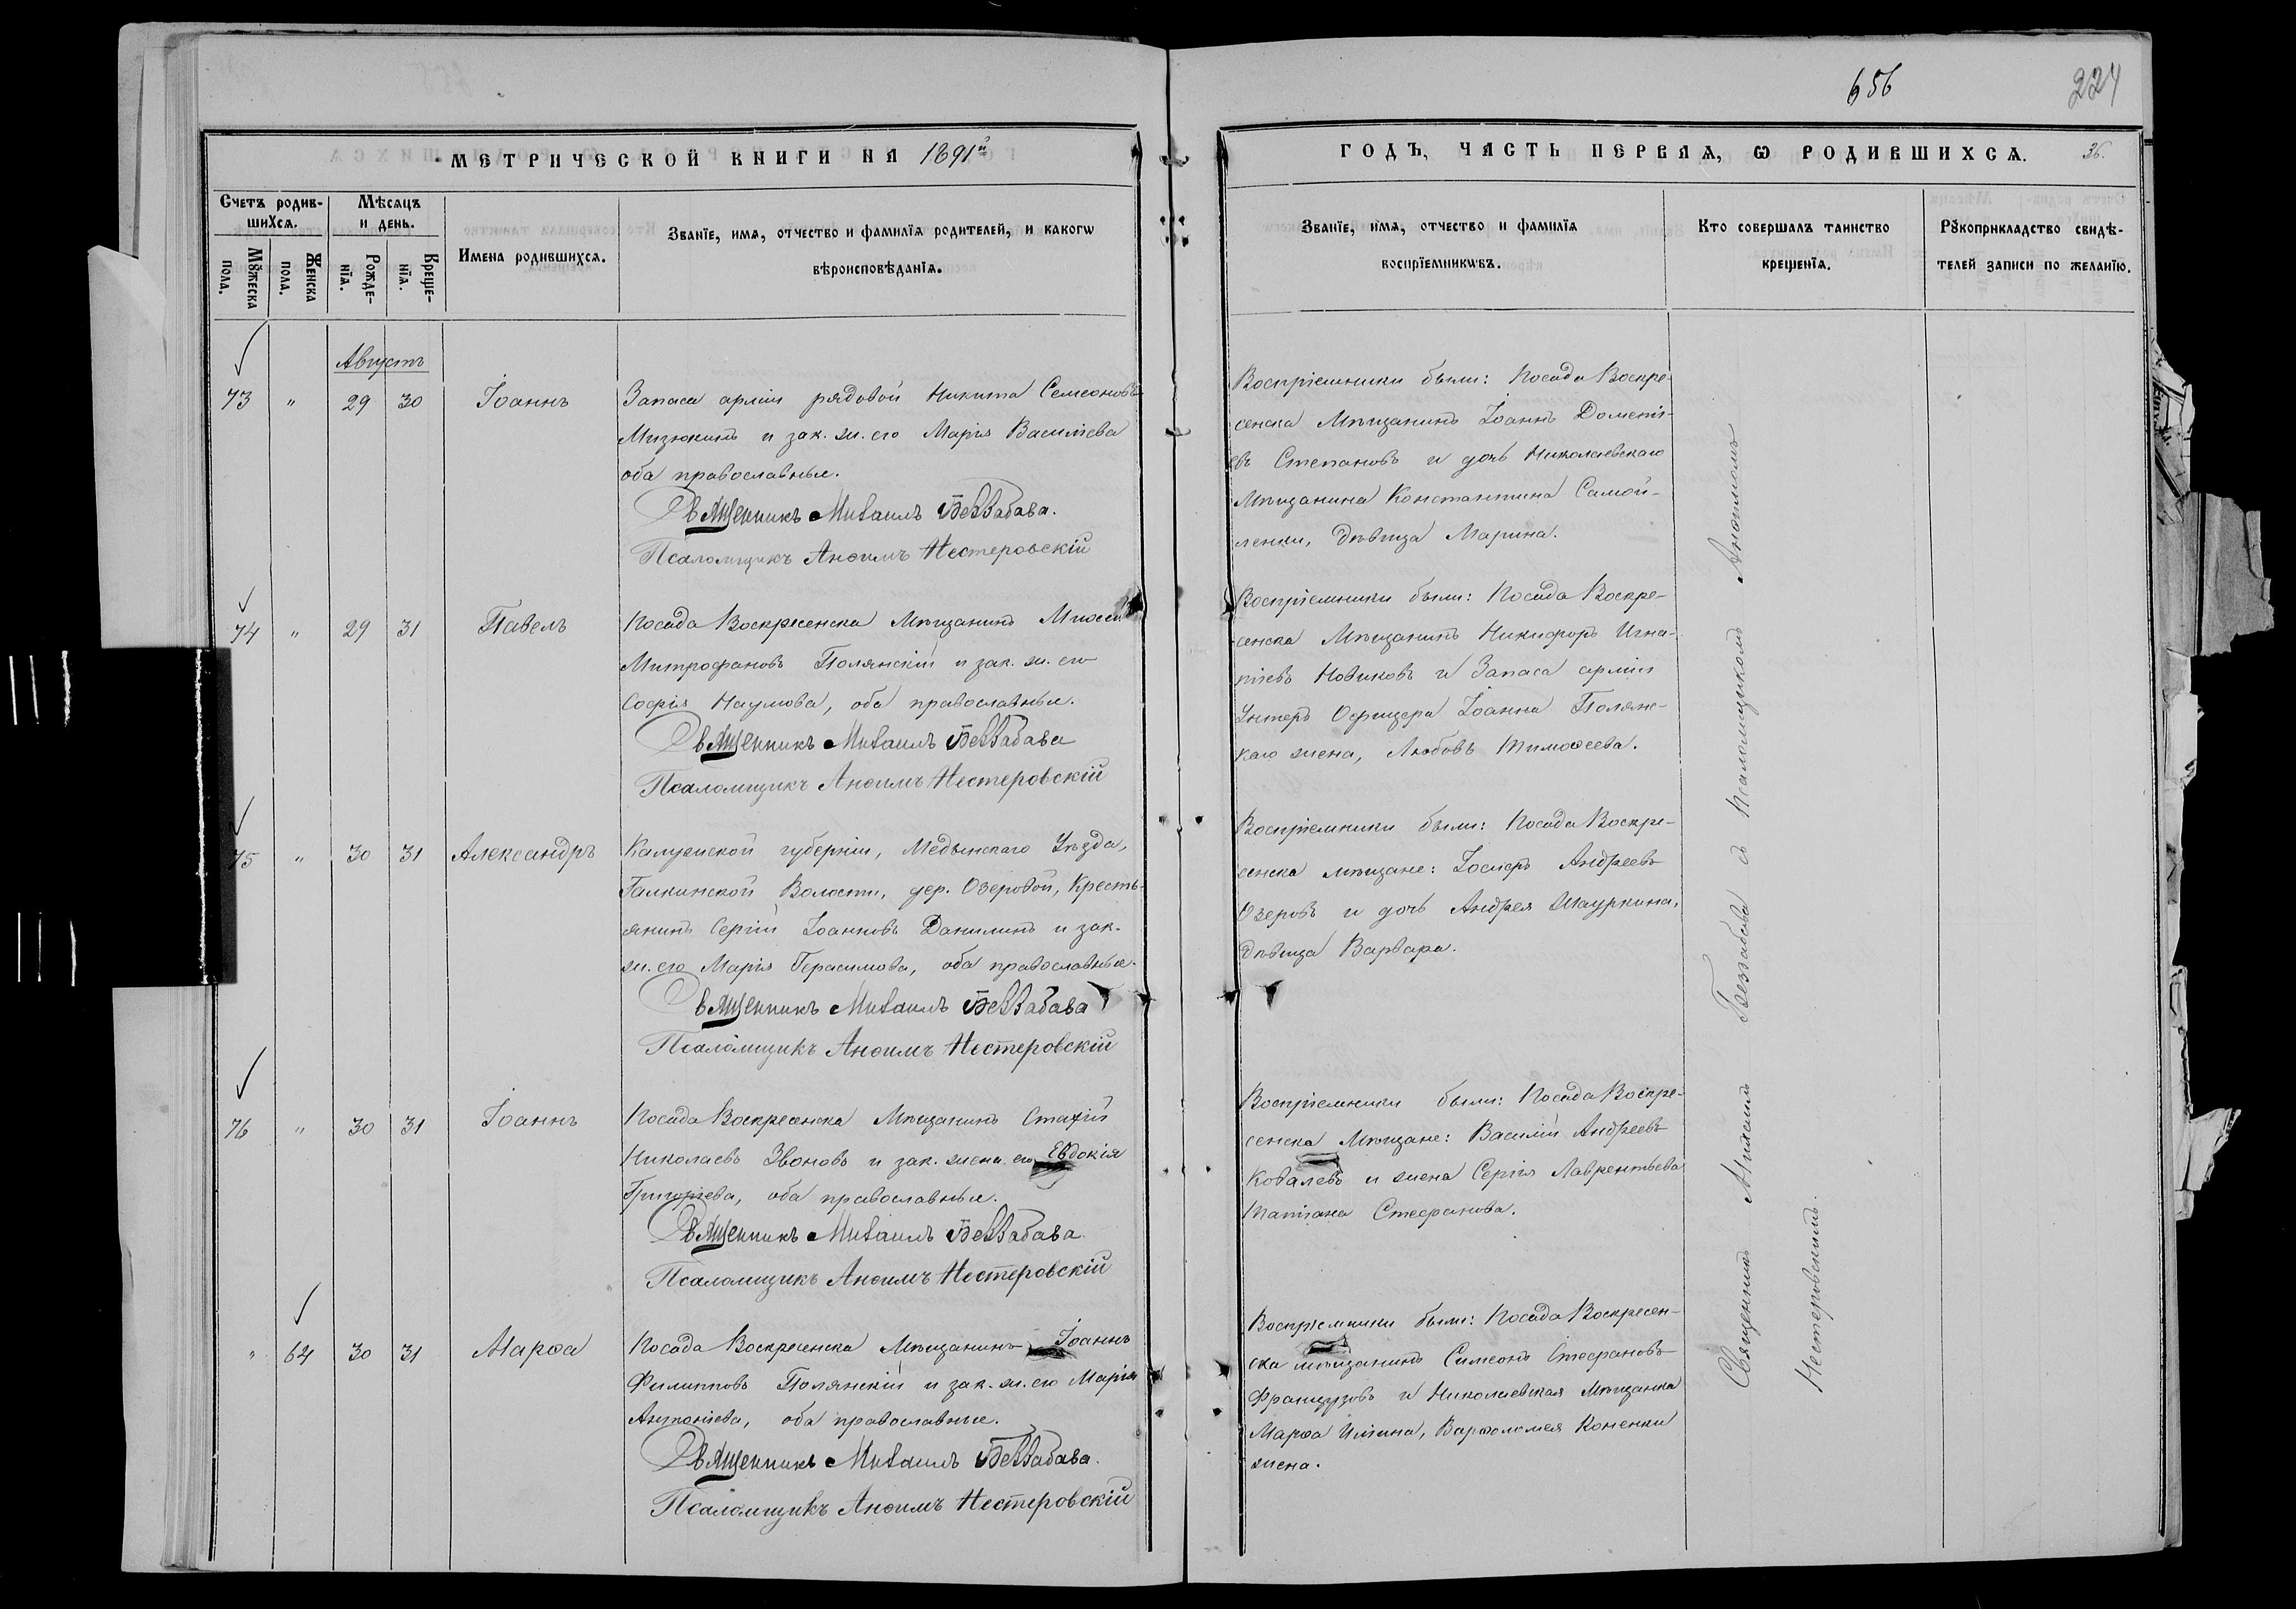 656
224
МЕТРИЧЕСКОЙ КНИГИ НА 1891й
ГОДЪ, ЧАСТЬ ПЕРВАЯ, Ѡ РОДИВШИХСѦ.
36.
Счетъ родив-
шихсѧ.
Мѣсѧцъ
и день.
Мꙋжеска
пола.
Женска
пола.
Рожде-
нїѧ.
Креще-
нїѧ.
Имена родившихсѧ.
Званїе, имѧ, отчество и фамилїѧ родителей, и какогѡ
вѣроисповѣданїѧ.
Званїе, имѧ, отчество и фамилїѧ
воспрїемникѡвъ.
Кто совершалъ таинство
крещенїѧ.
Рꙋкоприкладство свидѣ-
телей записи по желанїю.
Августъ
73 " 29 30 Іоаннъ
Запаса арміи рядовой Никита Семеоновъ
Мизюкинъ и зак. ж. его Марія Василіева
оба православные.
Священникъ Михаилъ Беззабава.
Псаломщикъ Анѳимъ Нестеровскій
Воспріемники были: Посада Воскре-
сенска Мѣщанинъ Іоаннъ Дометі-
евъ Степановъ и дочь Николаевскаго
Мѣщанина Константина Самой-
ленки, дѣвица Марина.
74 " 29 31 Павелъ
Посада Воскресенска Мѣщанинъ Мѡсей
Митрофановъ Полянскій и зак. ж. его
Софія Наумова, оба православные.
Священникъ Михаилъ Беззабава
Псаломщикъ Анѳимъ Нестеровскій
Воспріемники были: Посада Воскре-
сенска Мѣщанинъ Никифоръ Игна-
тіевъ Новиковъ и Запаса арміи
Унтеръ Офицера Іоанна Полянс-
каго жена, Любовь Тимоѳеева.
75 " 30 31 Александръ
Калужской губерніи, Медынскаго Уѣзда,
Галкинской Волости, дер. Озеровой, Кресть-
янинъ Сергій Іоанновъ Данилинъ и зак.
ж. его Марія Герасимова, оба православные.
Священникъ Михаилъ Беззабава
Псаломщикъ Анѳимъ Нестеровскій
Воспріемники были: Посада Воскре-
сенска мѣщане: Іосифъ Андреевъ
Озеровъ и дочь Андрея Шауркина,
дѣвица Варвара.
76 " 30 31 Іоаннъ
Посада Воскресенска Мѣщанинъ Стахій
Николаевъ Звоновъ и зак. жена его Евдокія
Григоріева, оба православные.
Священникъ Михаилъ Беззабава.
Псаломщикъ Анѳимъ Нестеровскій
Воспріемники были: Посада Воскре-
сенска Мѣщане: Василій Андреевъ
Ковалевъ и жена Сергія Лаврентьева
Татіана Стефанова.
" 64 30 31 Марѳа
Посада Воскресенска Мѣщанинъ Іоаннъ
Филипповъ Полянскій и зак. ж. его Марія
Антоніева, оба православные.
Священникъ Михаилъ Беззабава.
Псаломщикъ Анѳимъ Нестеровскій
Воспріемники были: Посада Воскресен-
ска мѣщанинъ Симеонъ Стефановъ
Французовъ и Николаевская Мѣщанка
Марѳа Иліина, Варѳоломея Коненки
жена.
Священникъ Михаилъ Беззабава съ Псаломщикомъ Анѳимомъ
Нестеровскимъ.